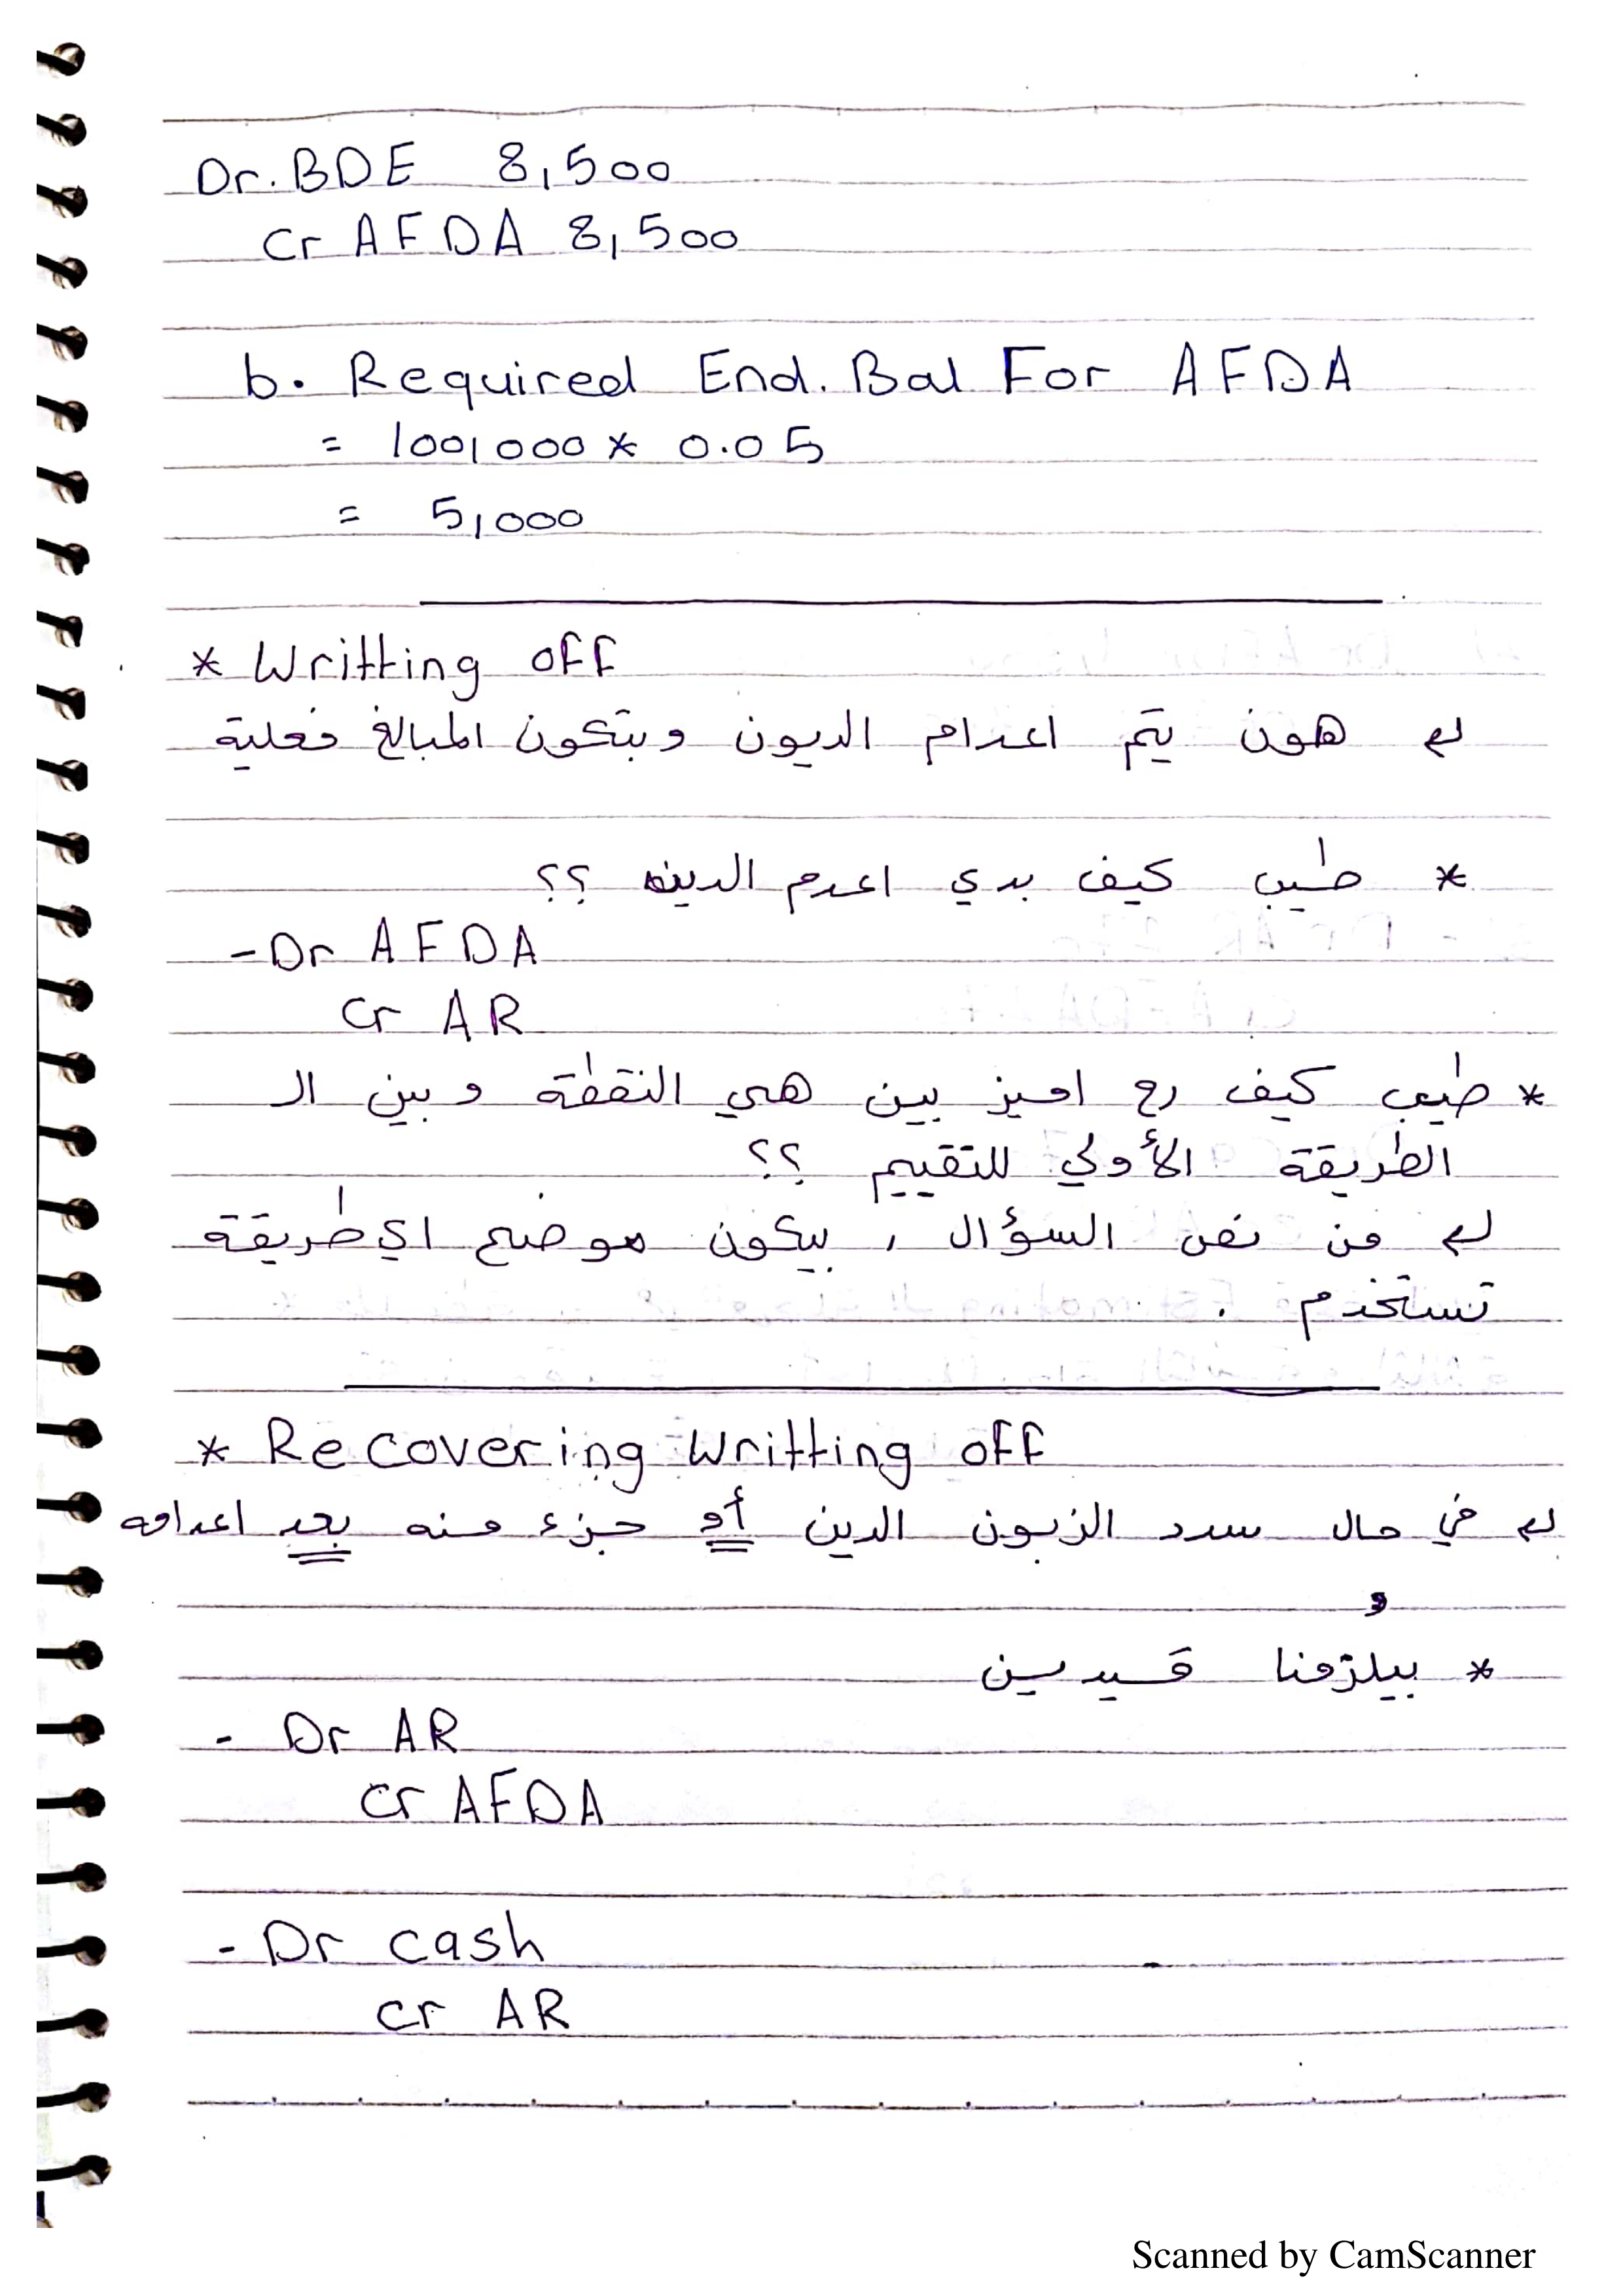 Dr. BDE 8,500
Cr AFDA 8,500
b. Required End. Bal For AFDA
= 100,000 * 0.05
= 5,000
* Writting off
هون يتم اعدام الديون وبتكون المبالغ فعلية
* طيب كيف بدي اعدم الدين ؟؟
- Dr AFDA
Cr AR
* طيب كيف رح اميز بين هي النقطة وبين الـ
الطريقة الأولى للتقييم ؟؟
من نص السؤال ، بيكون موضح اي طريقة
تستخدم .
* Recovering Writting off
في حال سدد الزبون الدين أو جزء منه بعد اعدامه
* بيلزمنا قيدين
- Dr AR
Cr AFDA
- Dr cash
Cr AR
Scanned by CamScanner